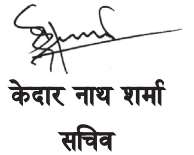 केदार नाथ शर्मा
सचिव